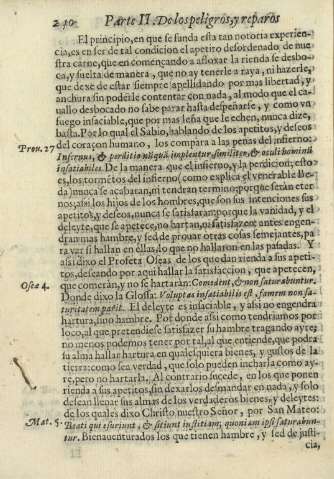 240 Parte II. De los peligros, y reparos
El principio, en que se funda esta tan notoria experien-
cia, es en ser de tal condicion el apetito desordenado de nue-
stra carne, que en començando a afloxar la rienda se desbo-
ca, y suelta de manera, que no ay tenerle a raya, ni hazerle,
que dexe de estar siempre apellidando por mas libertad, y
anchura sin poderle contentar con nada, al modo que el ca-
uallo desbocado no sabe parar hasta despeñarse, y como vn
fuego insaciable, que por mas leña que le echen, nunca dize,
basta. Por lo qual el Sabio, hablando de los apetitos, y deseos
Prou. 27 del coraçon humano, los compara a las penas del infierno:
Infernus, & perditio nũquã implentur, similiter & oculi hominũ
insatiabiles. De la manera que el infierno, y la perdicion, esto
es, los tormẽtos del infierno, como explica el venerable Be-
da, nunca se acabaran, ni tendran termino, porque serán eter
nos; asi los hijos de los hombres, que son sus intenciones sus
apetitos, y deseos, nunca se satisfaran; porque la vanidad, y el
deleyte, que se apetece, no hartan, ni satisfazen: antes engen-
dran mas hambre, y sed de prouar otras cosas semejantes, pa
ra ver si hallan en ellas, lo que no hallaron en las pasadas. Y
asi dixo el Profeta Oseas, de los que dan rienda a sus apeti-
tos, deseando por aqui hallar la satisfaccion, que apetecen,
Osea 4. que comerán, y no se hartarán: Comedent, & non saturabuntur.
Donde dixo la Glossa: Voluptas insatiabilis est, famem non sa-
turitatem parit. El deleyte es insaciable, y asi no engendra
hartura, sino hambre. Por donde asi como tendriamos por
loco, al que pretendiese satisfazer su hambre tragando ayre;
no menos podemos tener por tal, al que entiende, que podra
su alma hallar hartura en qualesquiera bienes, y gustos de la
tierra: como sea verdad, que solo pueden incharla como ay-
re, pero no hartarla. Al contrario sucede, en los que ponen
rienda a sus apetitos, sin dexarlos desmandar en nada, y solo
desean llenar sus almas de los verdaderos bienes, y deleytes:
de los quales dixo Christo nuestro Señor, por San Mateo:
Mat. 5. Beati qui esuriunt, & sitiunt iustitiam, quoniam ipsi saturabun-
tur. Bienauenturados los que tienen hambre, y sed de justi-
cia,